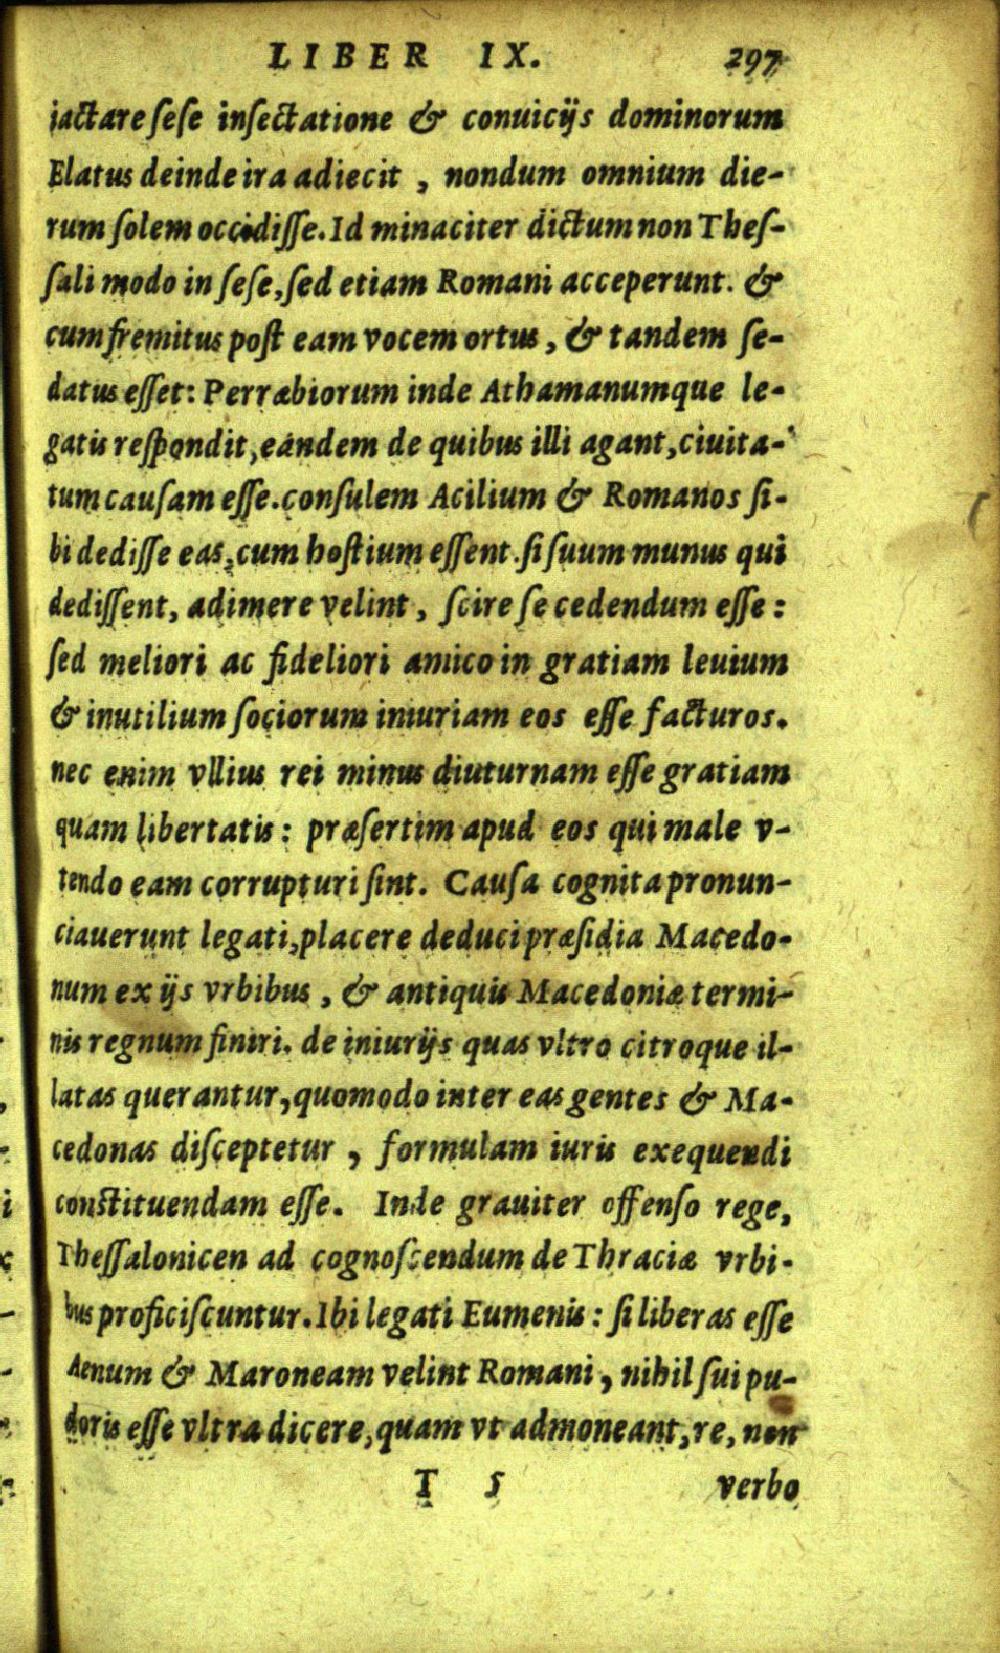 LIBER IX. 297
iactare ſeſe inſectatione & conuicijs dominorum
Elatus deinde ira adiecit , nondum omnium die-
rum ſolem occidiſſe. Id minaciter dictum non Theſ-
ſali modo in ſeſe, ſed etiam Romani acceperunt. &
cum fremitus poſt eam vocem ortus , & tandem ſe-
datus eſſet: Perræbiorum inde Athamanumque le-
gatis reſpondit, eándem de quibus illi agant, ciuita-
tum cauſam eſſe. conſulem Acilium & Romanos ſi-
bi dediſſe eas, cum hoſtium eſſent. ſi ſuum munus qui
dediſſent, adimere velint , ſcire ſe cedendum eſſe :
ſed meliori ac fideliori amico in gratiam leuium
& inutilium ſociorum iniuriam eos eſſe facturos.
nec enim vllius rei minus diuturnam eſſe gratiam
quam libertatis : præſertim apud eos qui male v-
tendo eam corrupturi ſint. Cauſa cognita pronun-
ciauerunt legati, placere deduci præſidia Macedo-
num ex ijs vrbibus , & antiquis Macedoniæ termi-
nis regnum finiri. de iniurijs quas vltro citroque il-
latas querantur, quomodo inter eas gentes & Ma-
cedonas diſceptetur , formulam iuris exequendi
conſtituendam eſſe. Inde grauiter offenſo rege,
Theſſalonicen ad cognoſcendum de Thraciæ vrbi-
bus proficiſcuntur. Ibi legati Eumenis : ſi liberas eſſe
Aenum & Maroneam velint Romani , nihil ſui pu-
doris eſſe vltra dicere, quam vt admoneant, re, non
T 5 verbo